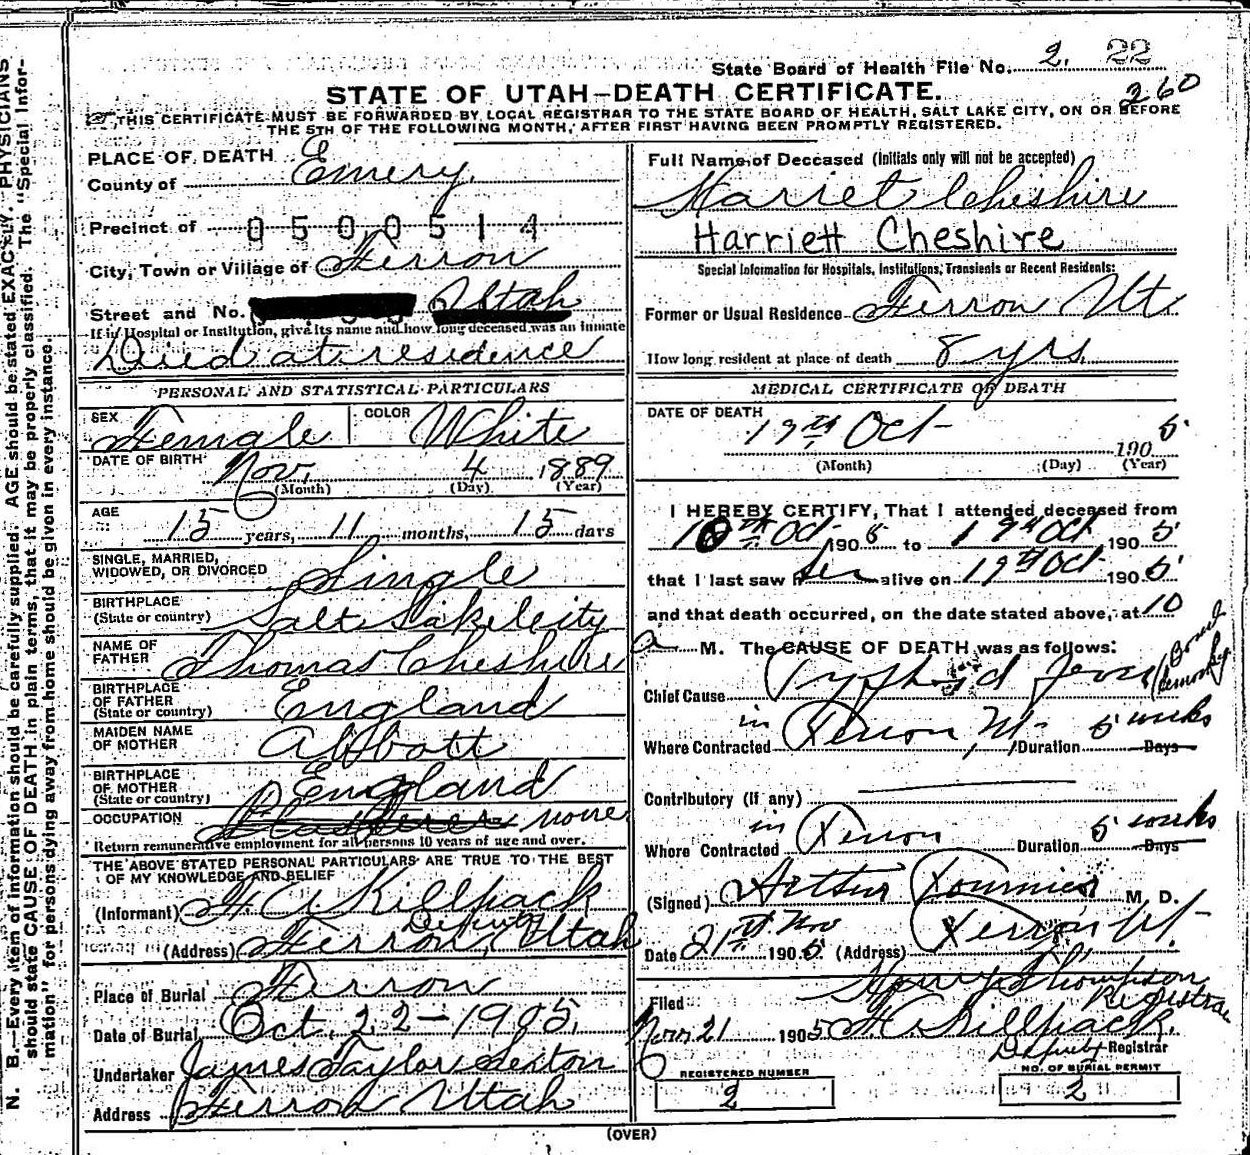 State Board of Health File No. 2. 22
260
STATE OF UTAH—DEATH CERTIFICATE.
THIS CERTIFICATE MUST BE FORWARDED BY LOCAL REGISTRAR TO THE STATE BOARD OF HEALTH, SALT LAKE CITY, ON OR BEFORE
THE 5TH OF THE FOLLOWING MONTH, AFTER FIRST HAVING BEEN PROMPTLY REGISTERED.
PLACE OF DEATH
County of Emery.
Precinct of 0500514
City, Town or Village of Ferron
Street and No. Utah
If in Hospital or Institution, give its name and how long deceased was an inmate
Died at residence
PERSONAL AND STATISTICAL PARTICULARS
SEX Female COLOR White
DATE OF BIRTH Nov. 4 1889
(Month) (Day) (Year)
AGE 15 years, 11 months, 15 days
SINGLE, MARRIED,
WIDOWED, OR DIVORCED Single
BIRTHPLACE
(State or country) Salt Lake City
NAME OF
FATHER Thomas Cheshire
BIRTHPLACE
OF FATHER
(State or country) England
MAIDEN NAME
OF MOTHER Abbott
BIRTHPLACE
OF MOTHER
(State or country) England
OCCUPATION none
Return remunerative employment for all persons 10 years of age and over.
THE ABOVE STATED PERSONAL PARTICULARS ARE TRUE TO THE BEST
OF MY KNOWLEDGE AND BELIEF
(Informant) H. A. Killpack
Deputy
(Address) Ferron, Utah
Place of Burial Ferron
Date of Burial Oct. 22—1905.
Undertaker James Taylor Sexton
Address Ferron Utah
Full Name of Deceased (Initials only will not be accepted)
Harriet Cheshire
Harriett Cheshire
Special Information for Hospitals, Institutions, Transients or Recent Residents:
Former or Usual Residence Ferron Ut.
How long resident at place of death 8 yrs.
MEDICAL CERTIFICATE OF DEATH
DATE OF DEATH
19th Oct 190 5
(Month) (Day) (Year)
I HEREBY CERTIFY, That I attended deceased from
Oct 190 5 to 19th Oct 190 5
that I last saw her alive on 19th Oct 190 5
and that death occurred, on the date stated above, at 10
a M. The CAUSE OF DEATH was as follows:
Chief Cause Typhoid fever (Bowel
Where Contracted in Ferron Ut. Duration 5 weeks Days
Contributory (if any)
Where Contracted in Ferron Duration 5 weeks Days
(Signed) Arthur Fournier M. D.
Date 21st Nov 190 5. (Address) Ferron Ut.
Henry Thompson
Registrar
Filed
Nov 21 190 5 H. A. Killpack.
Deputy Registrar
REGISTERED NUMBER
2
NO. OF BURIAL PERMIT
2
(OVER)
N. B.—Every item of information should be carefully supplied. AGE should be stated EXACTLY. PHYSICIANS
should state CAUSE OF DEATH in plain terms, that it may be properly classified. The "Special Infor-
mation" for persons dying away from home should be given in every instance.